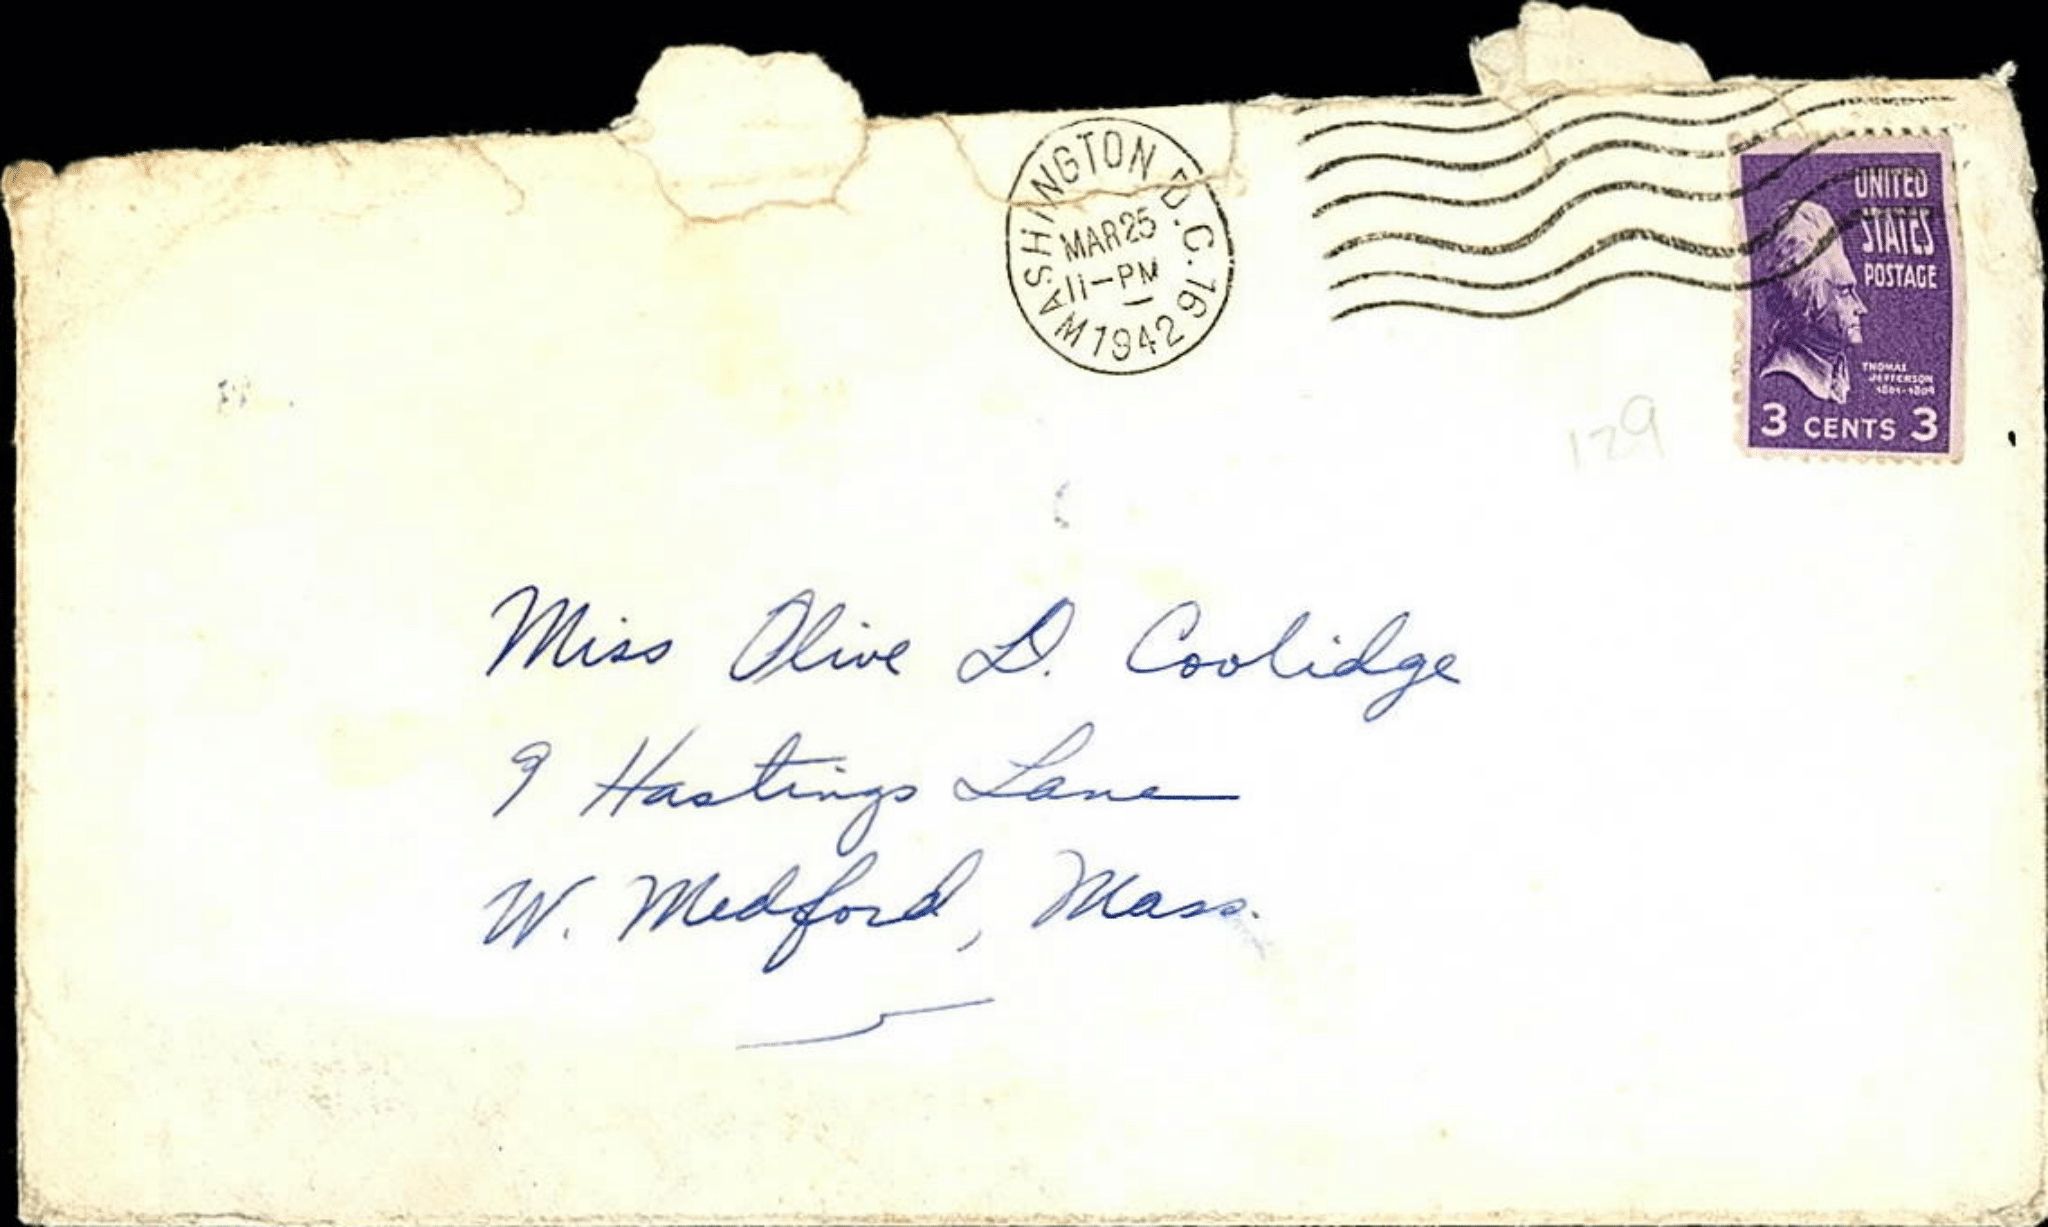 WASHINGTON D.C. 16
MAR 25
11-PM
1942
UNITED
STATES
POSTAGE
THOMAS
JEFFERSON
1801-1809
3 CENTS 3
129
Miss Olive D. Coolidge
9 Hastings Lane
W. Medford, Mass.